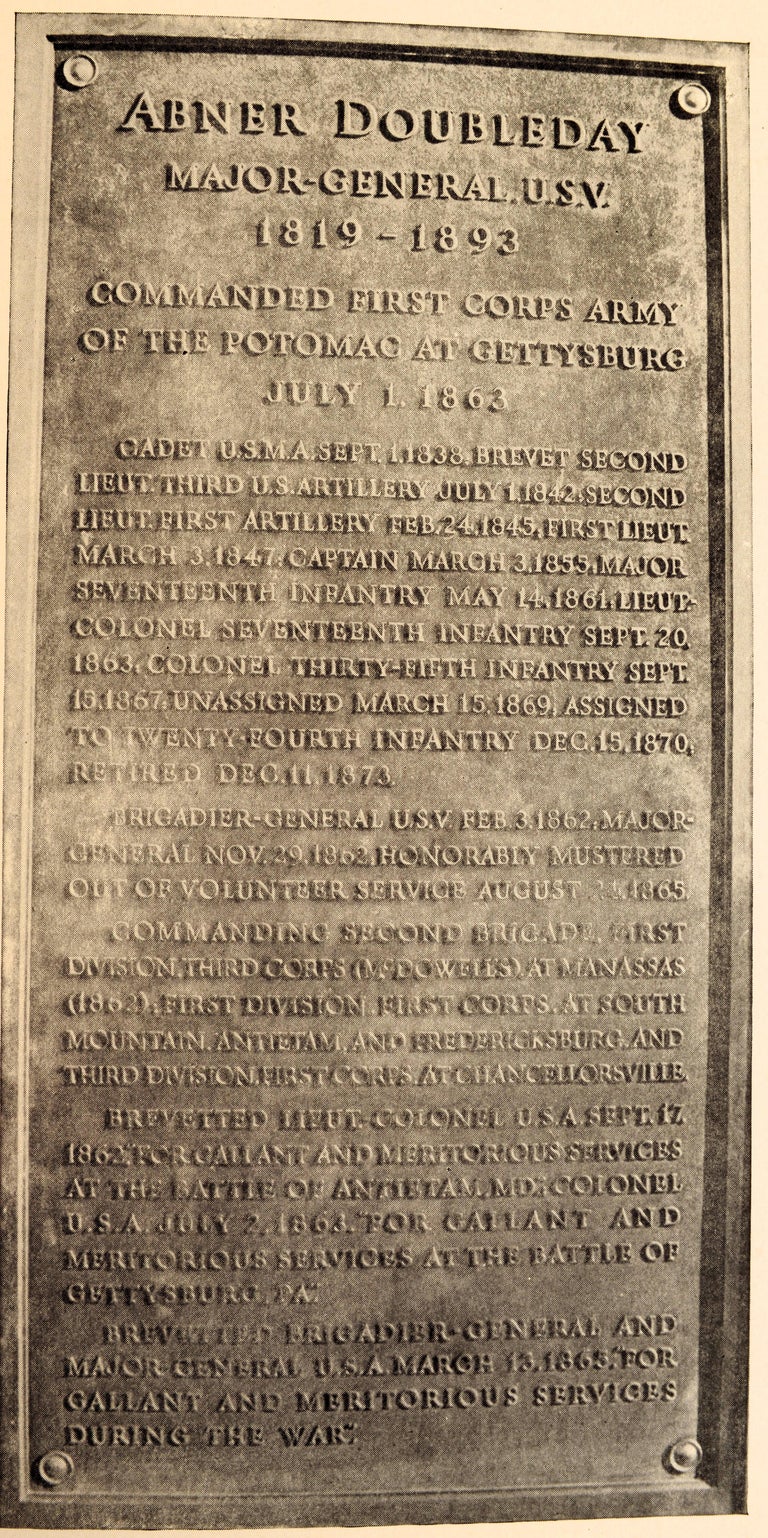 ABNER DOUBLEDAY
MAJOR-GENERAL, U.S.V.
1819 - 1893
COMMANDED FIRST CORPS ARMY
OF THE POTOMAC AT GETTYSBURG
JULY 1, 1863
CADET U.S.M.A. SEPT. 1, 1838, BREVET SECOND
LIEUT. THIRD U.S. ARTILLERY JULY 1, 1842; SECOND
LIEUT. FIRST ARTILLERY FEB. 24, 1845, FIRST LIEUT.
MARCH 3, 1847; CAPTAIN MARCH 3, 1855; MAJOR
SEVENTEENTH INFANTRY MAY 14, 1861; LIEUT.-
COLONEL SEVENTEENTH INFANTRY SEPT. 20,
1863; COLONEL THIRTY-FIFTH INFANTRY SEPT.
15, 1867; UNASSIGNED MARCH 15, 1869; ASSIGNED
TO TWENTY-FOURTH INFANTRY DEC. 15, 1870;
RETIRED DEC. 11, 1873.
BRIGADIER-GENERAL U.S.V. FEB. 3, 1862; MAJOR-
GENERAL NOV. 29, 1862, HONORABLY MUSTERED
OUT OF VOLUNTEER SERVICE AUGUST 1865.
COMMANDING SECOND BRIGADE, FIRST
DIVISION, THIRD CORPS (McDOWELL'S), AT MANASSAS
(1862); FIRST DIVISION, FIRST CORPS, AT SOUTH
MOUNTAIN, ANTIETAM, AND FREDERICKSBURG, AND
THIRD DIVISION, FIRST CORPS, AT CHANCELLORSVILLE.
BREVETTED LIEUT.-COLONEL U.S.A. SEPT. 17,
1862, "FOR GALLANT AND MERITORIOUS SERVICES
AT THE BATTLE OF ANTIETAM, MD."; COLONEL
U.S.A. JULY 2, 1863, "FOR GALLANT AND
MERITORIOUS SERVICES AT THE BATTLE OF
GETTYSBURG, PA."
BREVETTED BRIGADIER-GENERAL AND
MAJOR-GENERAL U.S.A. MARCH 13, 1865, "FOR
GALLANT AND MERITORIOUS SERVICES
DURING THE WAR."